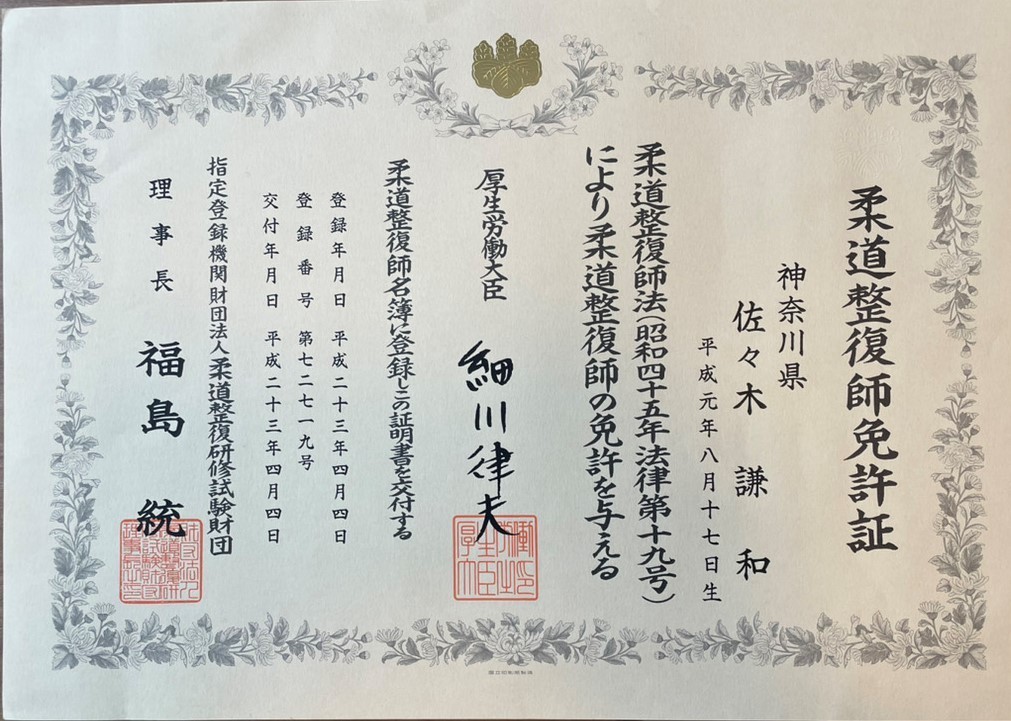 柔道整復師免許証
神奈川県
佐々木 謙和
平成元年八月十七日生
柔道整復師法(昭和四十五年法律第十九号)
により柔道整復師の免許を与える
厚生労働大臣 細川律夫
柔道整復師名簿に登録しこの証明書を交付する
登録年月日 平成二十三年四月四日
登録番号 第七二七一九号
交付年月日 平成二十三年四月四日
指定登録機関財団法人柔道整復研修試験財団
理事長 福島 統